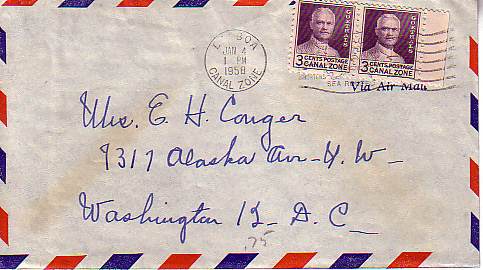 GOETHALS GOETHALS
3 CENTS POSTAGE 3 CENTS POSTAGE
CANAL ZONE CANAL ZONE
BOA
JAN 4
1 PM
1958
CANAL ZONE
SEA
Via Air Mail
Mrs. E. H. Conger
7317 Alaska Ave. N.W.
Washington 12 D.C.
.75